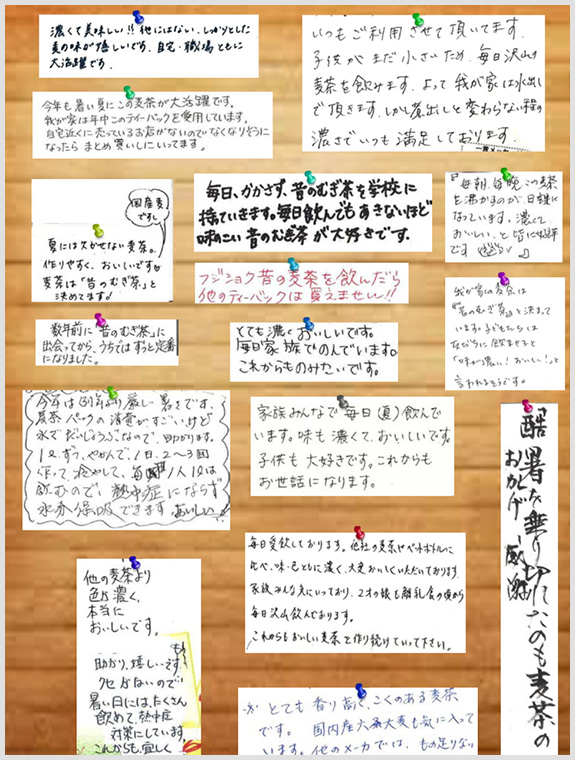 濃くて美味しい!! 他にはない、しっかりとした
麦の味が嬉しいです。自宅・職場ともに
大活躍です。
いつもご利用させて頂いてます。
子供がまだ小さいため、毎日沢山の
麦茶を飲みます。よって我が家は水出し
で頂きます。しかし煮出しと変わらない程の
濃さでいつも満足しております。
今年も暑い夏にこの麦茶が大活躍です。
我が家は年中このティーバックを愛用しています。
自宅近くに売っているお店がないのでなくなりそうに
なったら まとめ買いしにいってます。
国産麦
ですし
夏には欠かせない麦茶。
作りやすく、おいしいです
麦茶は「昔のむぎ茶」と
決めてます!
毎日、かかさず、昔のむぎ茶を学校に
持ていきます。毎日飲んでもあきないほど
味のこい昔のむぎ茶が大好きです。
『毎朝、毎晩この麦茶
を沸かすのが、日課に
なっています。濃くて
おいしい、と皆に好評
です
フジショク昔の麦茶を飲んだら
他のティーバックは買えません!!
我が家の麦茶は
『昔のむぎ茶』と決まって
います。子どもたちは
「味が濃い!おいしい!」と
言われるそうです。
数年前に「昔のむぎ茶」に
出会ってから、うちではずっと定番
になりました。
とても濃くおいしいです。
毎日家族でのんでいます。
これからものみたいです。
今年は例年より厳しい暑さです。
麦茶パックの消費がすごいけど
水でだいじょうぶなので、助かります。
1ℓずつ、やかんで、1日、2〜3回
作って、冷やして、毎日1人1ℓは
飲むので、熱中症にならず
水分補給できます。おいしい
家族みんなで毎日(夏)飲んで
います。味も濃くて、おいしいです。
子供も大好きです。これからも
お世話になります。
『酷暑を乗り切れたのも麦茶の
おかげ 感謝
毎日愛飲しております。他社の麦茶やペットボトルに
比べ、味・色ともに濃く、大変おいしくいただいております。
家族みんな気にいっており、2才の娘も離乳食の頃から
毎日沢山飲んでおります。
これからもおいしい麦茶を作り続けていって下さい。
他の麦茶より
色が濃く、
本当に
おいしいです。
助かり、嬉しいです
クセがないので
暑い日には、たくさん
飲めて、熱中症
対策にしています。
これからも、宜しく
とても香り高く、こくのある麦茶
です。国内産六条大麦も気に入って
います。他のメーカーでは、もの足りない